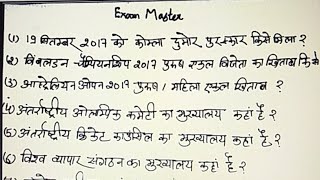 Exam Master
(1) 19 सितम्बर 2017 को कोमला पुमोर पुरस्कार किसे मिला ?
(2) विंबलडन चैम्पियनशिप 2017 पुरुष एकल विजेता का खिताब किसे
(3) आस्ट्रेलियन ओपन 2017 पुरुष / महिला एकल खिताब ?
(4) अंतर्राष्ट्रीय ओलम्पिक कमेटी का मुख्यालय कहां है ?
(5) अंतर्राष्ट्रीय क्रिकेट काउंसिल का मुख्यालय कहां है ?
(6) विश्व व्यापार संगठन का मुख्यालय कहां है ?